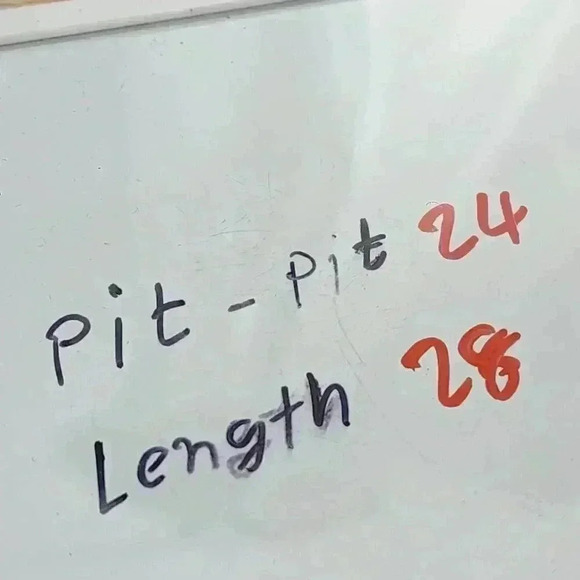 Pit - Pit 24
Length 28